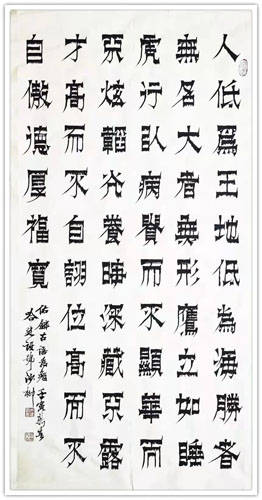 人低爲王地低為海勝者
無名大者無形鷹立如睡
虎行臥病賢而不顯華而
不炫韜光養晦深藏不露
才高而不自詡位高而不
自傲德厚福寬
錄古語